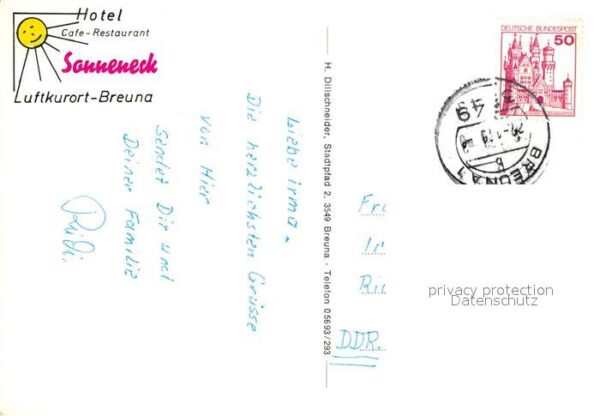 Hotel
Cafe-Restaurant
Sonneneck
Luftkurort-Breuna
Liebe Irma.
Die herzlichsten Grüsse
von Hier
Sendet Dir und
Deiner Familie
Rudi.
H. Dillschneider, Stadtpfad 2, 3549 Breuna · Telefon 05693/293
DEUTSCHE BUNDESPOST
50
3549
BREUNA 1
b
Fr
Ir
DDR.
privacy protection
Datenschutz